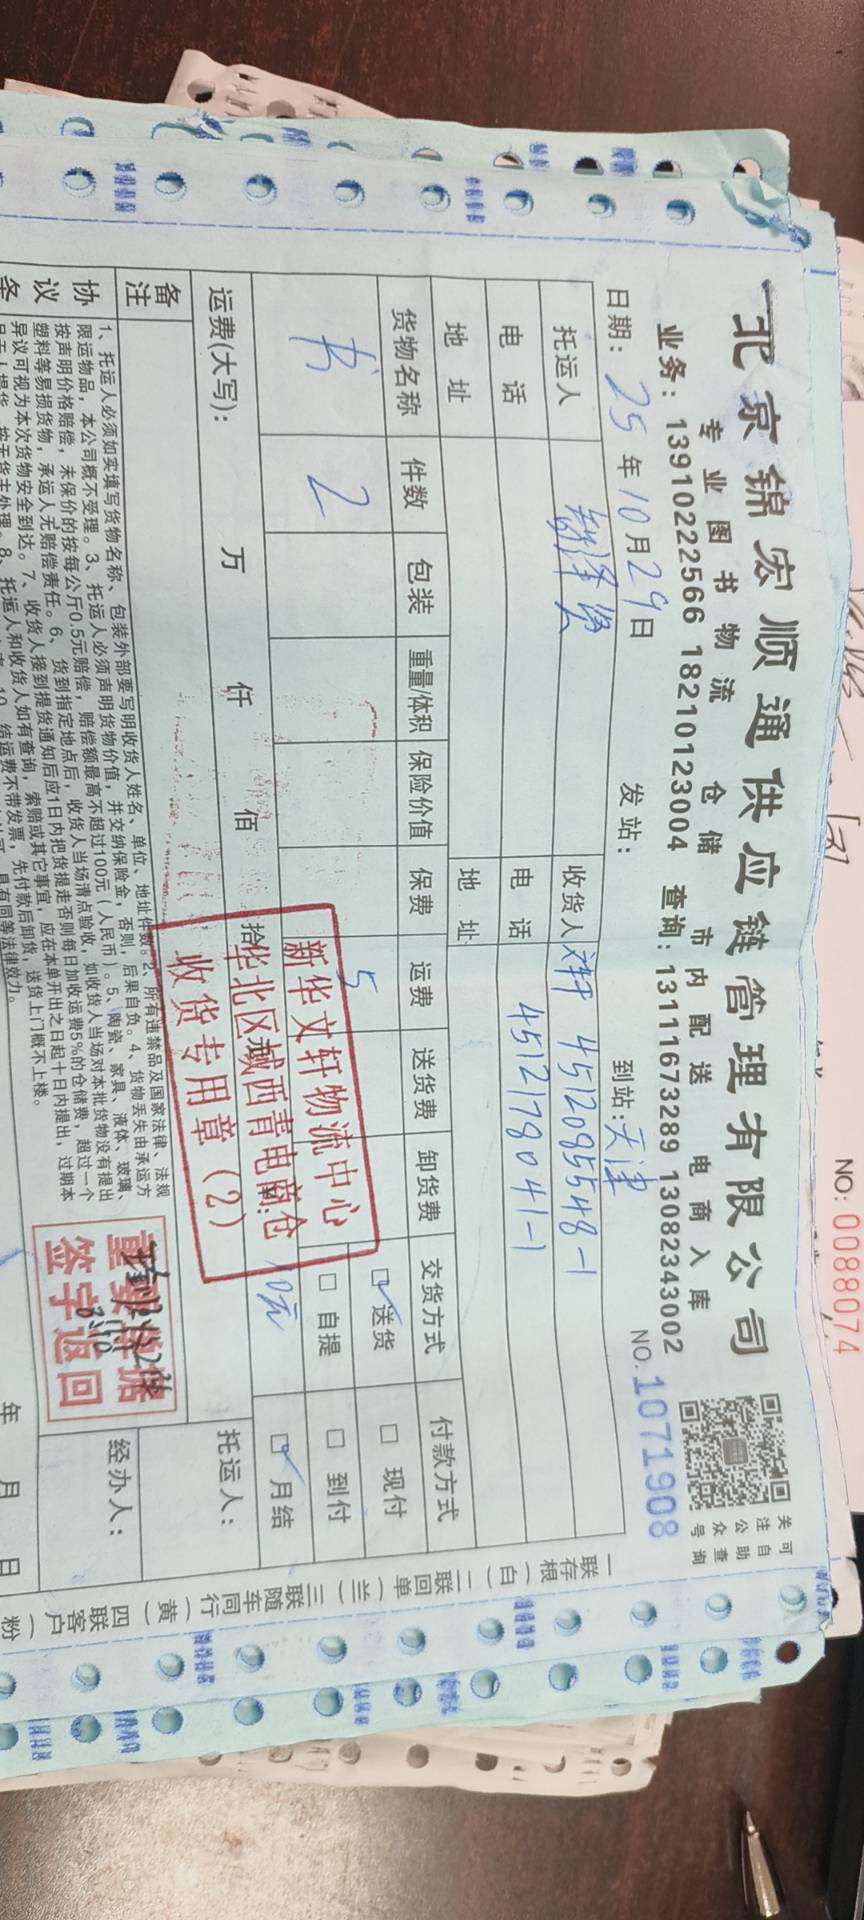 北京锦宏顺通供应链管理有限公司
专业图书物流 仓储 市内配送 电商入库
业务：13910222566 18210123004 查询：13111673289 13082343002
关注公众号
可自助查询
NO.1071908
日期：25年10月29日 发站： 到站：天津
托运人 收货人 4512095548-1
电话 电话 4512178041-1
地址 地址
货物名称 件数 包装 重量/体积 保险价值 保费 运费 送货费 卸货费 交货方式 付款方式
书 2 5 送货 现付
自提 到付
月结
运费(大写)： 万 仟 佰 拾
新华文轩物流中心
华北区域西青电商仓
收货专用章（2）
备注
托运人：
经办人：
年 月 日
协议条
1、托运人必须如实填写货物名称、包装外部要写明收货人姓名、单位、地址件数。2、所有违禁品及国家法律、法规
限运物品，本公司概不受理。3、托运人必须声明货物价值，并交纳保险金，否则，后果自负。4、货物丢失由承运方
按声明价格赔偿，未保价的按每公斤0.5元赔偿，赔偿额最高不超过100元（人民币）。5、陶瓷、家具、液体、玻璃、
塑料等易损货物，承运人无赔偿责任。6、货到指定地点后，收货人当场清点验收，如收货人当场对本批货物没有提出
异议可视为本次货物安全到达。7、收货人接到提货通知后应1日内把货提走否则每日加收运费5%的仓储费，超过一个
月无人提货，按无货主处理。8、托运人和收货人如有查询，索赔或其它事宜，应在本单开出之日起十日内提出，过期本
10、结运费不带发票，先付款后卸货，送货上门概不上楼。
具有同等法律效力。
签字返回
一联存根（白）二联回单（兰）三联随车同行（黄）四联客户（粉
NO: 0088074